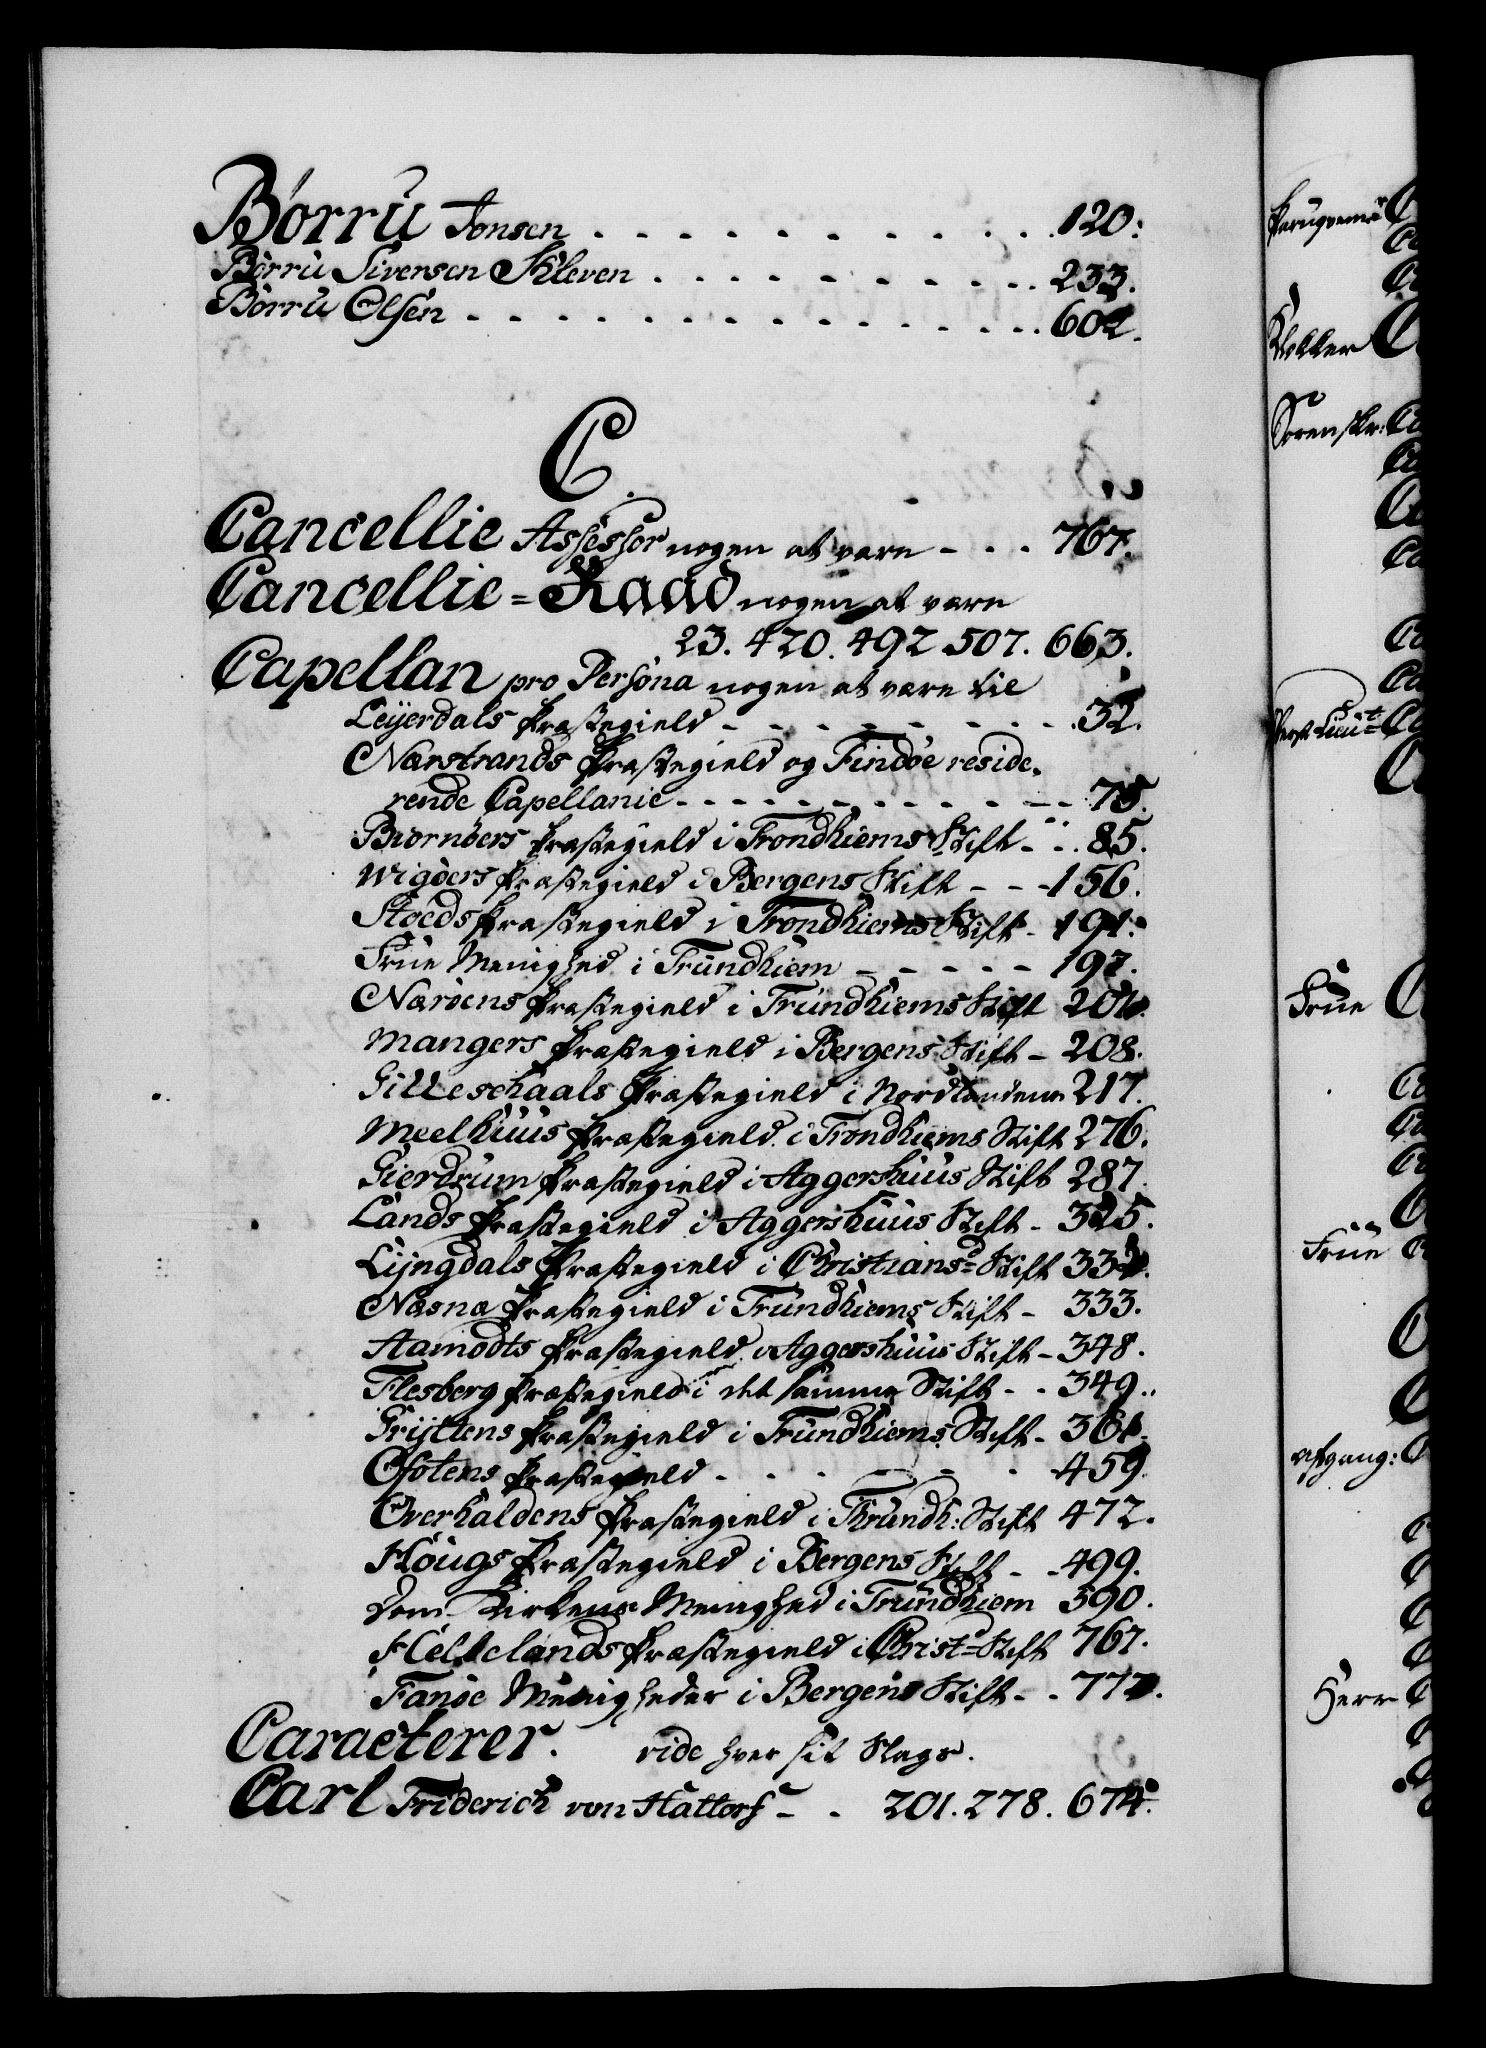 Børru Jonsen . . . . . . . . . . . 120.
Børru Siversen Kleven . . . . . . . . . . 233.
Børru Olsen . . . . . . . . . . . . . . 602.
C.
Cancellie Assessor nogen at være - . . 767.
Cancellie=Raad nogen at være
23. 420. 492. 507. 663.
Capellan pro Persona nogen at være til
Leyerdals Præstegield - - - - - - - - 32.
Nærstrands Præstegield og Findøe reside-
rende Capellanie - - - - - - - - - - 75.
Biørnøers Præstegield i Trondhiems Stift - . . 85.
Wigøers Præstegield i Bergens Stift - - - 156.
Stoeds Præstegield i Trondhiems Stift - 191.
Frue Menighed i Trundhiem - - - - - 197.
Nærøens Præstegield i Trundhiems Stift 201.
Mangers Præstegield i Bergens Stift - 208.
Gilleschaals Præstegield i Nordlandene 217.
Meelhuus Præstegield i Trondhiems Stift 276.
Gierdrum Præstegield i Aggershuus Stift 287.
Lands Præstegield i Aggershuus Stift - 325.
Lyngdals Præstegield i Christians.d Stift 332.
Næsna Præstegield i Trundhiems Stift - 333.
Aamodts Præstegield i Aggershuus Stift - 348.
Flesberg Præstegield i det samme Stift - . 349.
Gryttens Præstegield i Trundhiems Stift - 361.
Ofotens Præstegield . . . . . . . 459.
Overhaldens Præstegield i Thrundh: Stift 472.
Hougs Præstegield i Bergens Stift - . 499.
Dom Kirkens Menighed i Trundhiem 590.
Hellelands Præstegield i Christ.d Stift 767.
Fanøe Menigheder i Bergens Stift - . 772.
Caracterer. vide hver sit Slags.
Carl Friderich von Hattorf - . 201. 278. 674.
Sorenskr:
Frue
Frue
afgang:
Herr